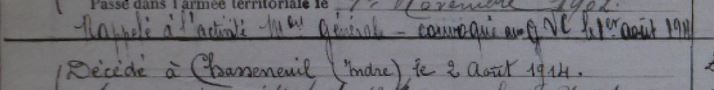 Passé dans l'armée territoriale le 1er Novembre 1902.
Rappelé à l'activité Mon Générale - convoqué au GVC le 1er août 1914
Décédé à Chasseneuil (Indre) le 2 Août 1914.